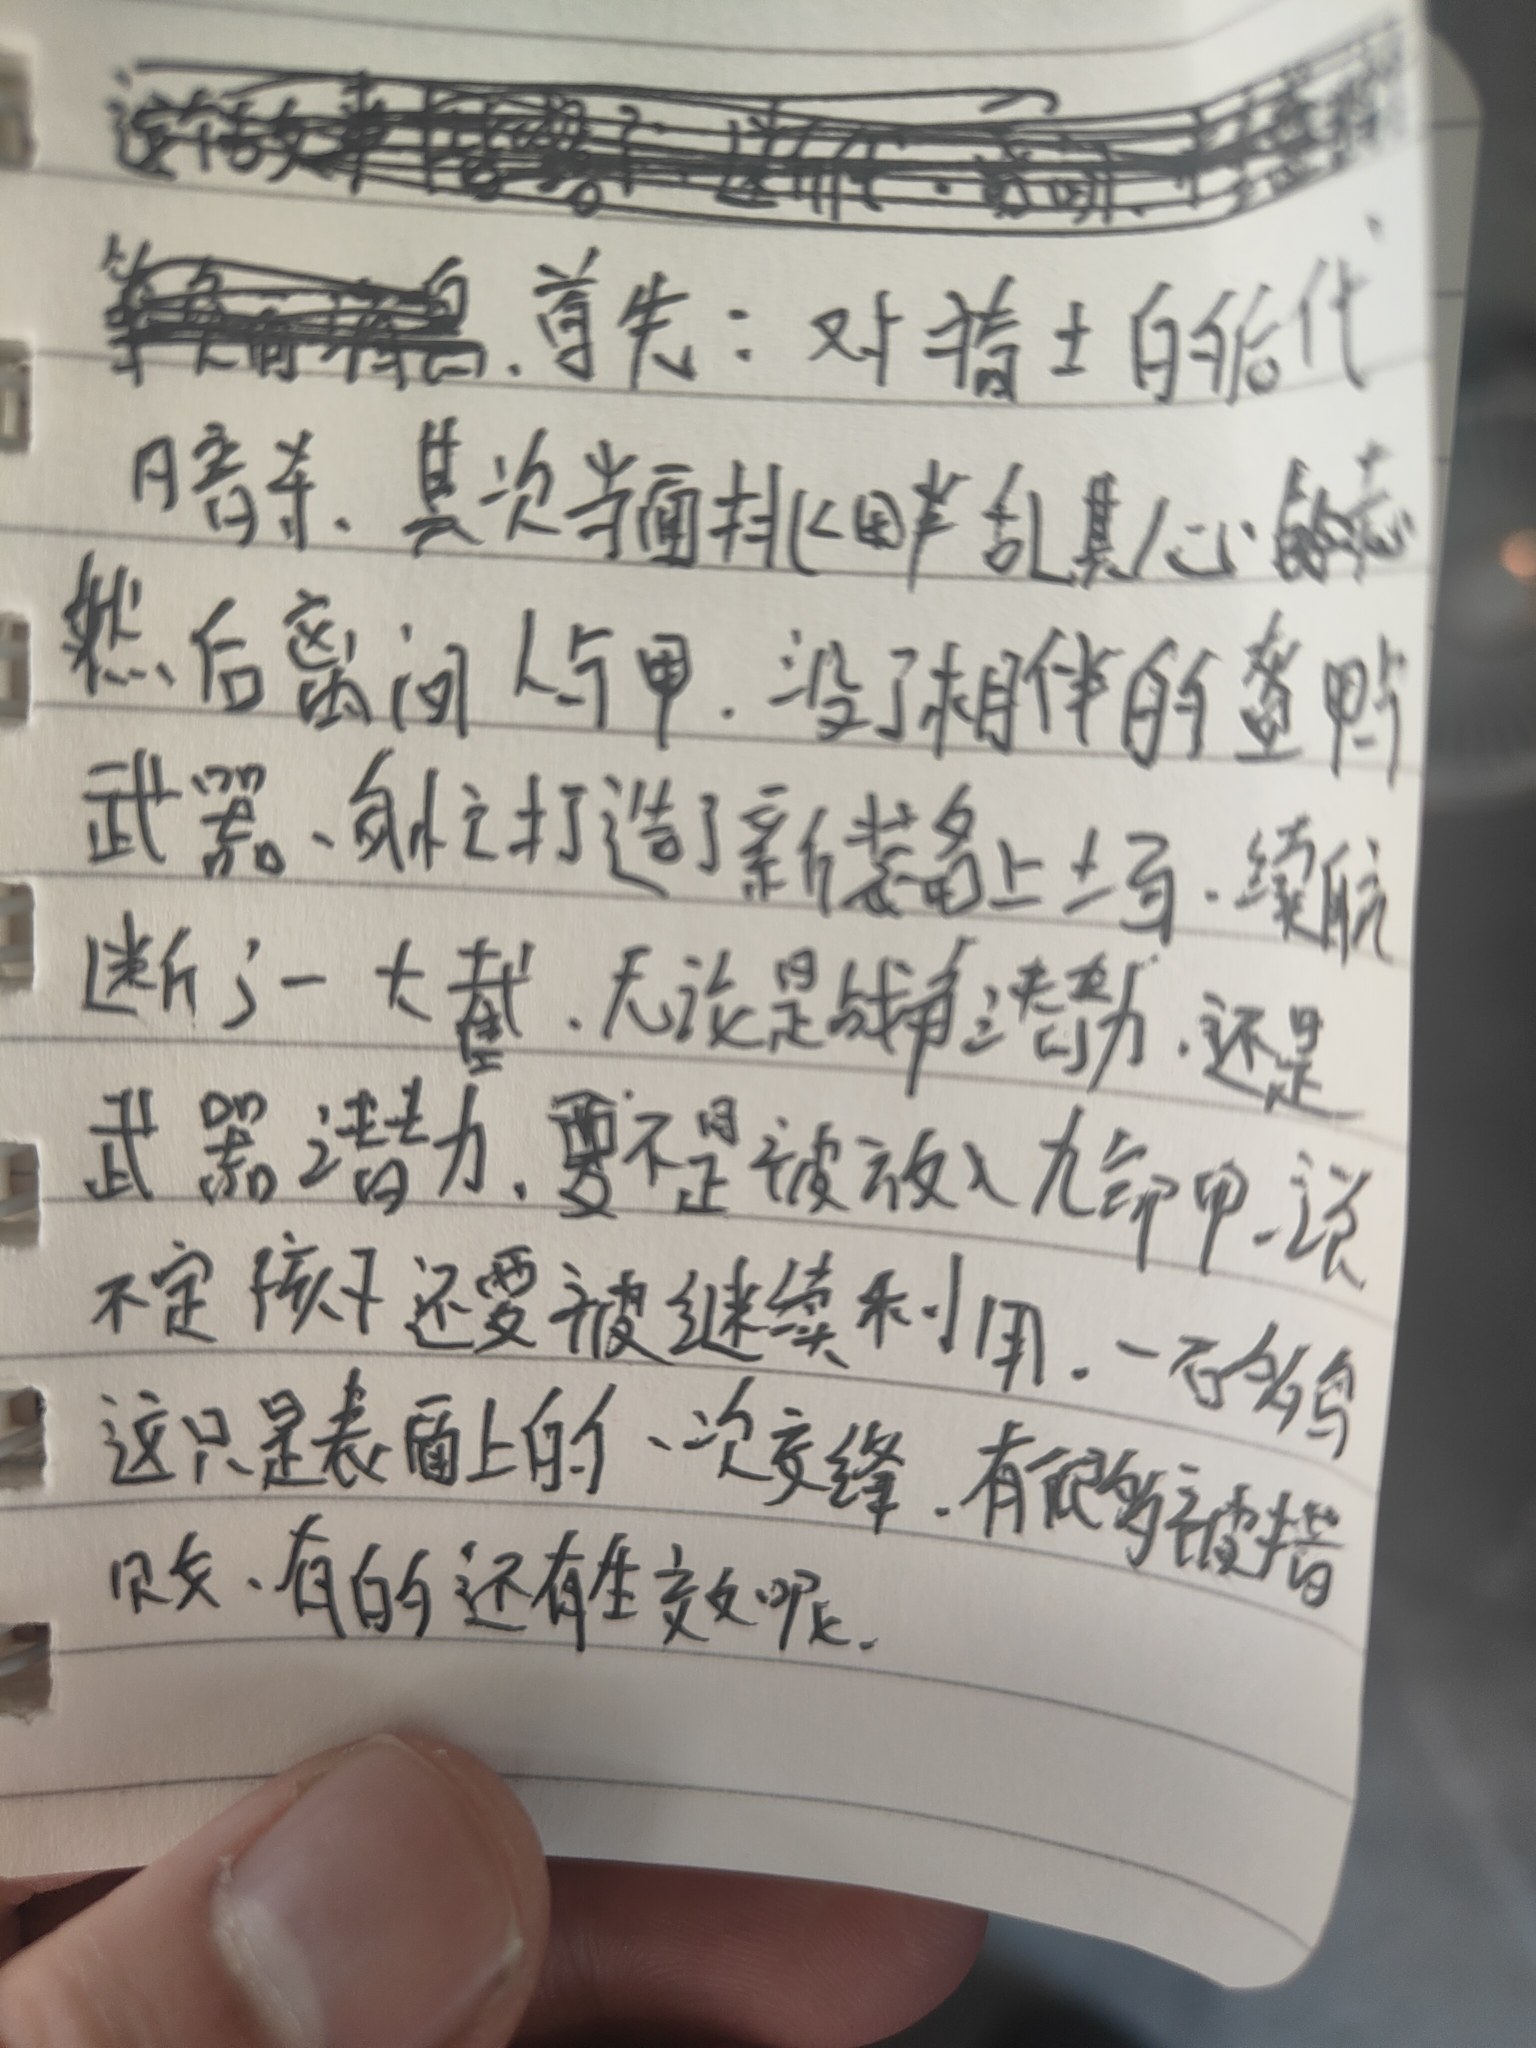 首先：对猎士的后代
暗杀、其次当面挑畔乱其心
然后离间人与甲.没了相伴的
武器、匆忙打造了新装备上士马.续航
断了一大截.无论是战争潜力.还是
武器潜力.要不是被放入九命甲.说
不定孩子还要被继续利用.一石
这只是表面上的、一次交锋.有很多被
败、有的还有生效呢.